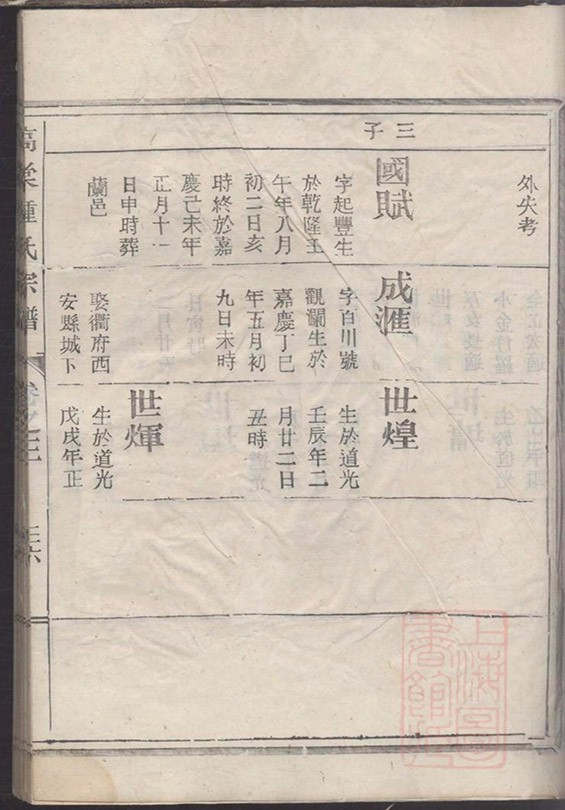 外失考
三子
國賦
字起豐生
於乾隆壬
午年八月
初二日亥
時終於嘉
慶己未年
正月十一
日申時葬
蘭邑
成滙
字百川號
觀瀾生於
嘉慶丁巳
年五月初
九日未時
娶衢府西
安縣城下
世煌
生於道光
壬辰年二
月廿二日
丑時
世煇
生於道光
戊戌年正
鍾氏宗譜
卷之二
三六
上海圖書館藏